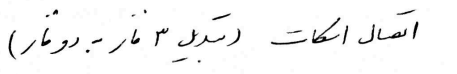 اتصال اسکات (تبدیل ۳ فاز به دو فاز)